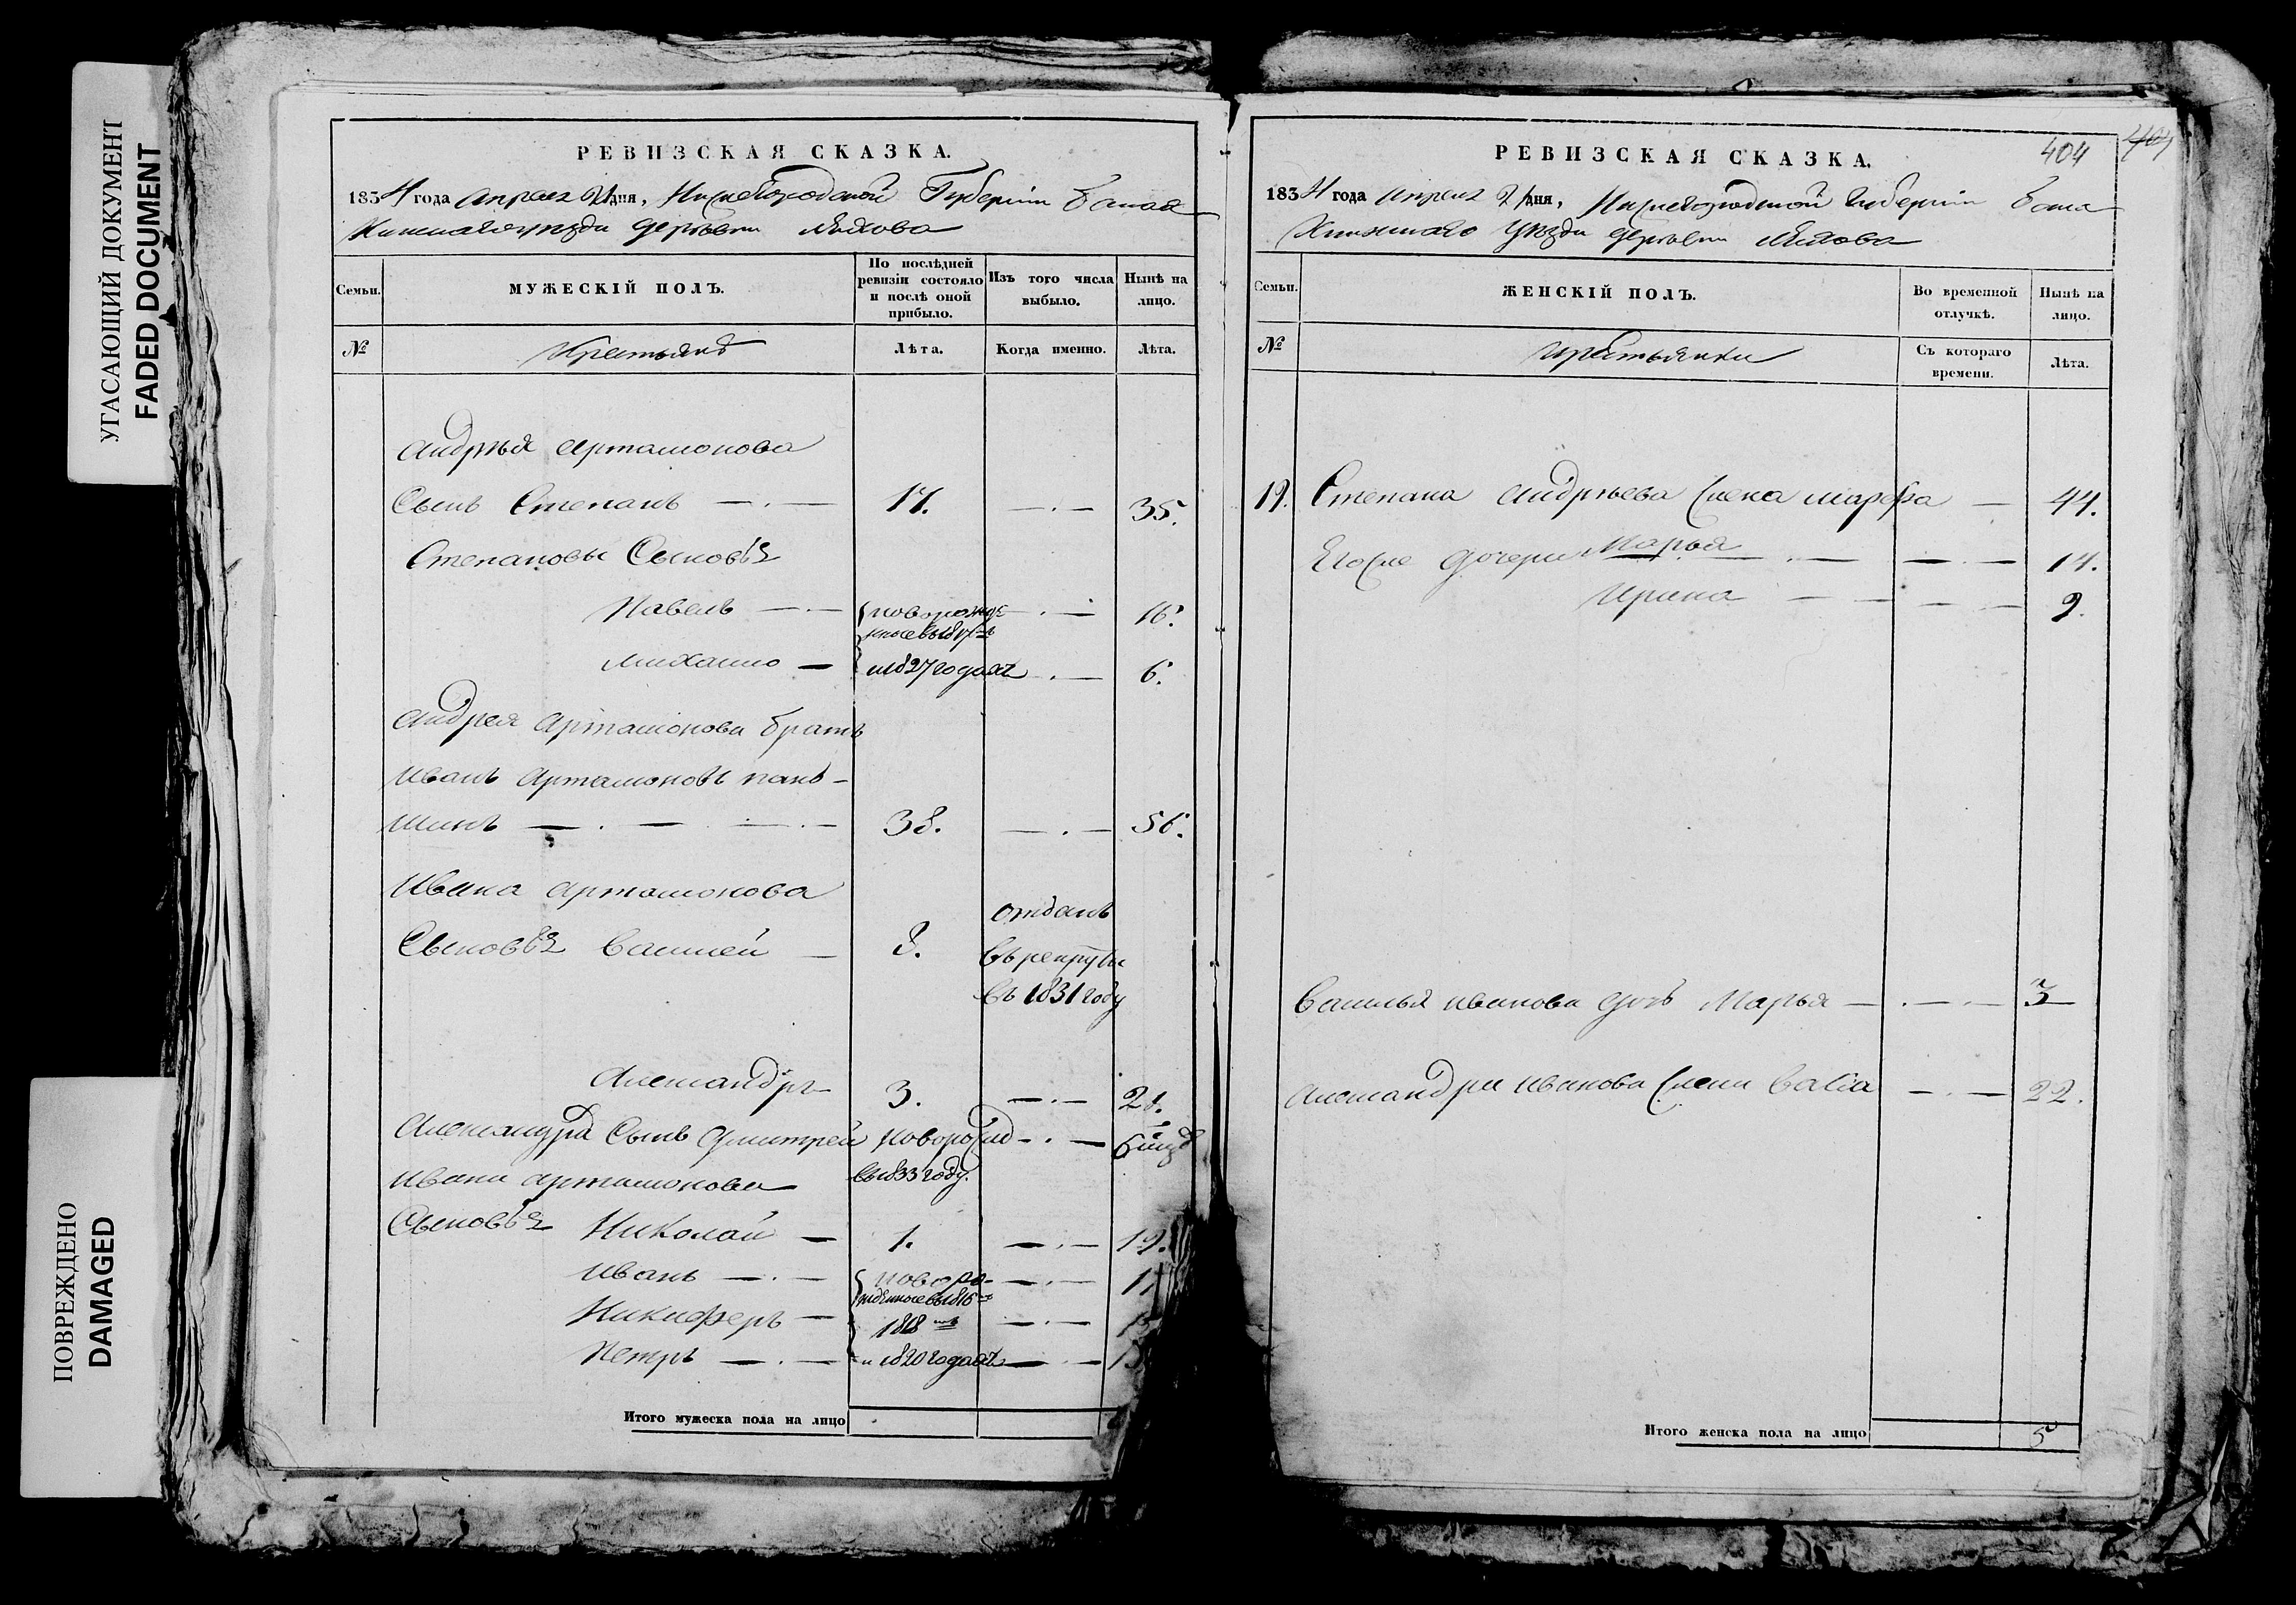 УГАСАЮЩИЙ ДОКУМЕНТ
FADED DOCUMENT
ПОВРЕЖДЕНО
DAMAGED
РЕВИЗСКАЯ СКАЗКА.
1834 года апреля 21 дня, Нижегородской Губернии Балах
уезда деревни
Семьи.
МУЖЕСКІЙ ПОЛЪ.
По послѣдней ревизіи состояло и послѣ оной прибыло.
Изъ того числа выбыло.
Нынѣ на лицо.
№
Крестьянъ
Лѣта.
Когда именно.
Лѣта.
Андрѣя Артамонова
Сынъ Степанъ 17. 35.
Степановы Сыновья
Павелъ новорожде 16.
нные въ 1817
Михаило и 1827 годахъ 6.
Андрея Артамонова братъ
Иванъ Артамоновъ пань-
шинъ 38. 56.
Ивана Артамонова
отданъ
Сыновья Василей 8. въ рекруты
въ 1831 году
Александръ 3. 21.
Александра Сынъ Дмитрей новорожд 6 мцъ
Ивана Артамонова въ 1833 году.
Сыновья Николай 1. 19.
Иванъ новоро-
жденные въ 1816
Никифоръ 1818
Петръ и 1820 годахъ
Итого мужеска пола на лицо
404
404
РЕВИЗСКАЯ СКАЗКА.
1834 года апреля 21 дня, Нижегородской Губерніи Бала
Хнинскаго Уѣзда деревни
Семьи.
ЖЕНСКІЙ ПОЛЪ.
Во временной отлучкѣ.
Нынѣ на лицо.
№
Крестьянки
Съ котораго времени.
Лѣта.
19. Степана Андрѣева Жена Марфа 44.
Егоже дочери Марья 14.
Ирина 9.
Василья Иванова дочь Марья 3
Александра Иванова Жена Васса 22.
Итого женска пола на лицо 5